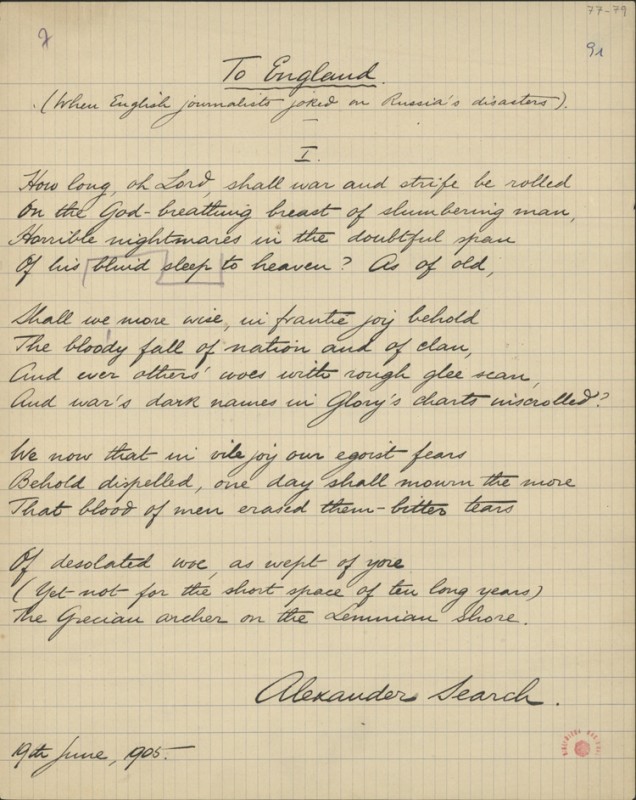 77-79
91
To England.
(When English journalists joked on Russia's disasters).
I.
How long, oh Lord, shall war and strife be rolled
On the God-breathing breast of slumbering man,
Horrible nightmares in the doubtful span
Of his blind sleep to heaven? As of old,
Shall we more wise, in frantic joy behold
The bloody fall of nation and of clan,
And ever others' woes with rough glee scan,
And war's dark names in Glory's charts inscrolled?
We now that in vile joy our egoist fears
Behold dispelled, one day shall mourn the more
That blood of men erased them-bitter tears
Of desolated woe, as wept of yore
(Yet not for the short space of ten long years)
The Grecian archer on the Lemnian shore.
Alexander Search.
19th June, 1905.